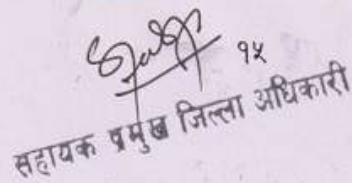 १५
सहायक प्रमुख जिल्ला अधिकारी